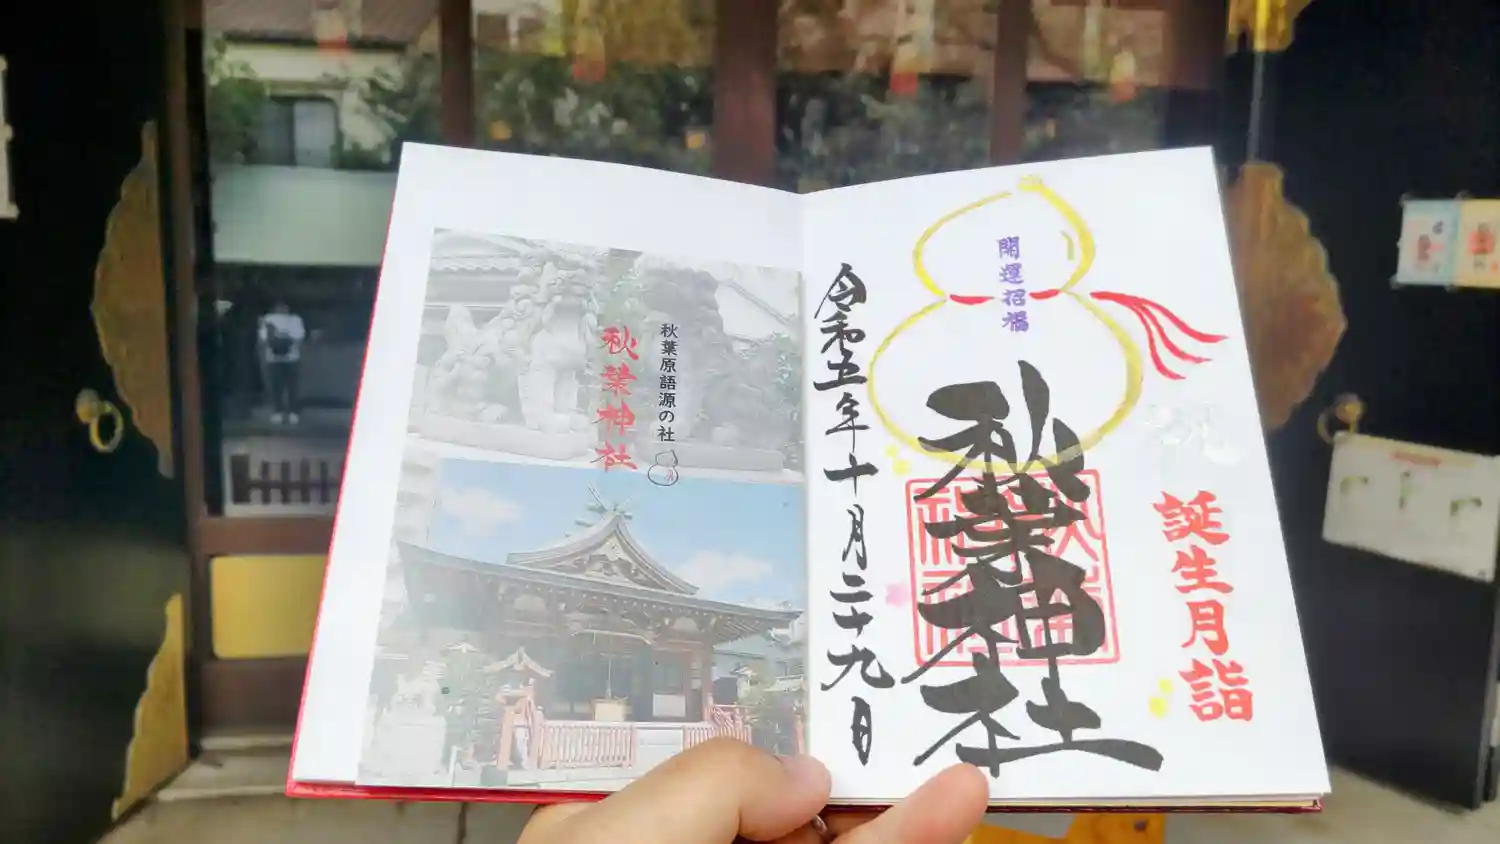 秋葉原語源の社
秋葉神社
誕生月詣
開運招福
秋葉神社
令和五年十月二十九日